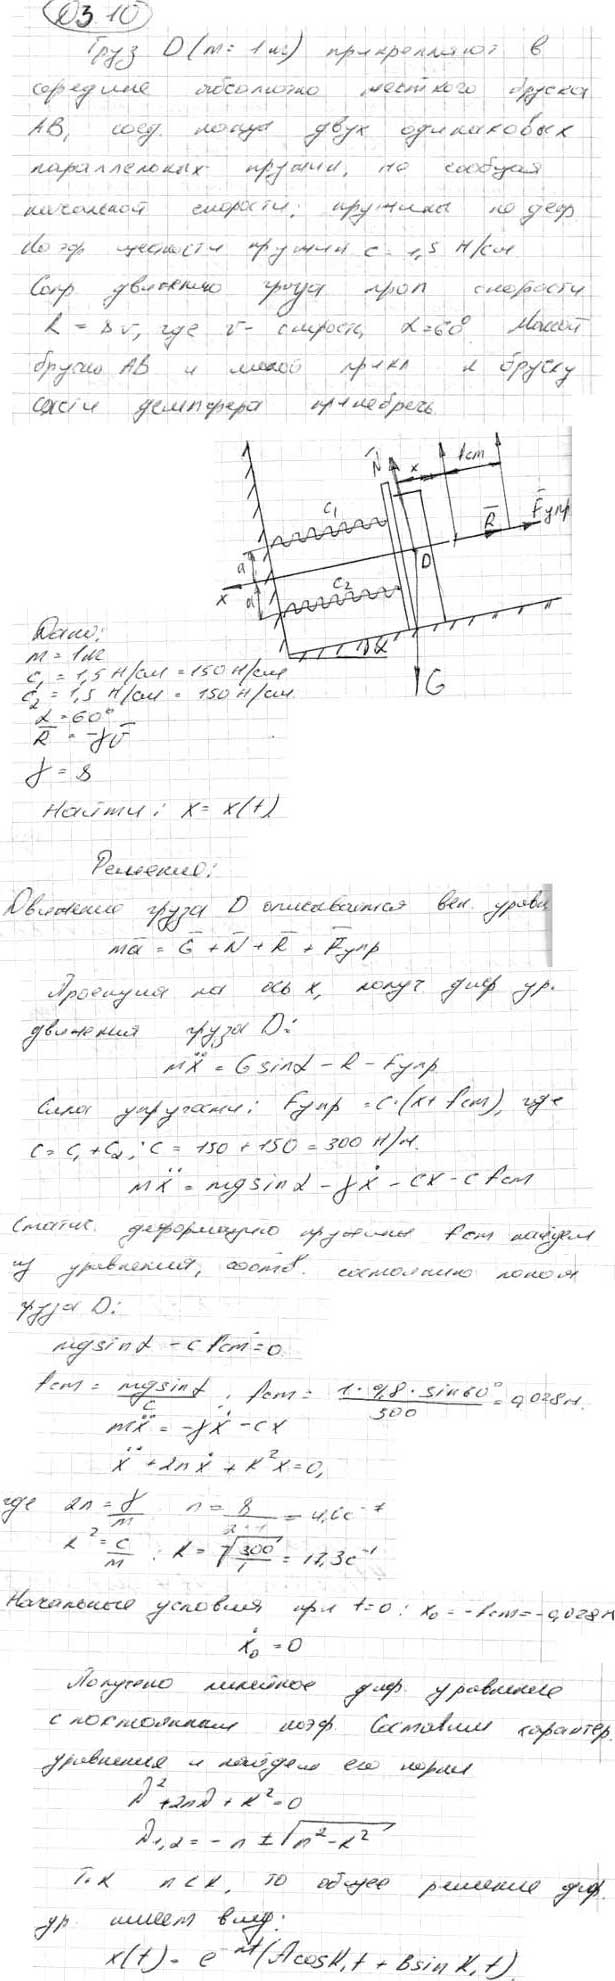 Д3 10
Груз D (m = 1 кг) прикрепляют в
середине абсолютно жесткого бруска
АВ, соед. концы двух одинаковых
параллельных пружин, не сообщая
начальной скорости; пружины не деф.
Коэф жесткости пружин с = 1,5 Н/см
Сопр движению груза проп скорости
R = 8v, где v - скорость, α=60°. Массой
бруска АВ и массой прикр к бруску
части демпфера пренебречь.
N x fст
c₁ R Fупр
a D
x
a c₂
α
G
Дано:
m = 1кг
c₁ = 1,5 Н/см = 150 Н/см
c₂ = 1,5 Н/см = 150 Н/см
α = 60°
R = -γv
γ = 8
Найти: x = x(t)
Решение:
Движение груза D описывается век. уравн
ma = G + N + R + Fупр
Проецируя на ось x, получ диф ур.
движения груза D:
mẍ = G sinα - R - Fупр
Сила упругости: Fупр = c·(x + fст), где
c = c₁ + c₂; c = 150 + 150 = 300 Н/м.
mẍ = mg sinα - γẋ - cx - c fст
Статич. деформацию пружины fст найдем
из уравнения, соотв. состоянию покоя
груза D:
mg sinα - c fст = 0
fст = mg sinα / c ; fст = 1 · 9,8 · sin 60° / 300 = 0,028 м.
mẍ = -γẋ - cx
ẍ + 2nẋ + k²x = 0,
где 2n = γ/m n = 8/2·1 = 4,0 c⁻¹
k² = c/m ; k = √300/1 = 17,3 c⁻¹
Начальные условия при t=0: x₀ = -fст = -0,028 м
ẋ₀ = 0
Получено линейное диф уравнение
с постоянным коэф. Составим характер.
уравнения и найдем его корни
λ² + 2nλ + k² = 0
λ₁,₂ = -n ± √n² - k²
Т.к n < k, то общее решение диф.
ур. имеет вид:
x(t) = e⁻ⁿᵗ(A cos k₁t + B sin k₁t)